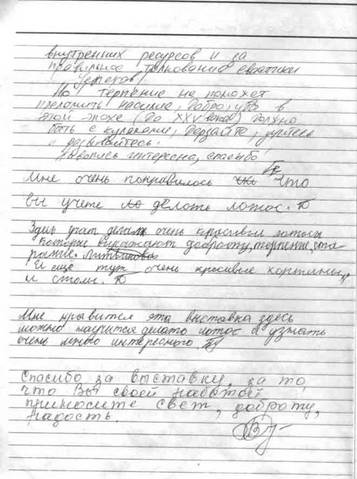 внутренних ресурсов и за
правильное толкование эзотерики
Успехов!
Но терпение не поможет
преломить насилие, добро в
этой эпохе (до XXV века) должно
быть с кулаками, дерзайте, учитесь
и развивайтесь.
Живопись интересна, спасибо
Мне очень понравилось что
вы учете делать лотос.
Здесь учат делать очень красивые лотосы
которые выражают доброту, терпение,
И еще тут очень красивые картины,
и стихи.
Мне нравится эта выставка здесь
можно научится делать лотос и узнать
очень много интересного
Спасибо за выставку, за то,
что Вы своей работой
приносите свет, доброту,
радость.